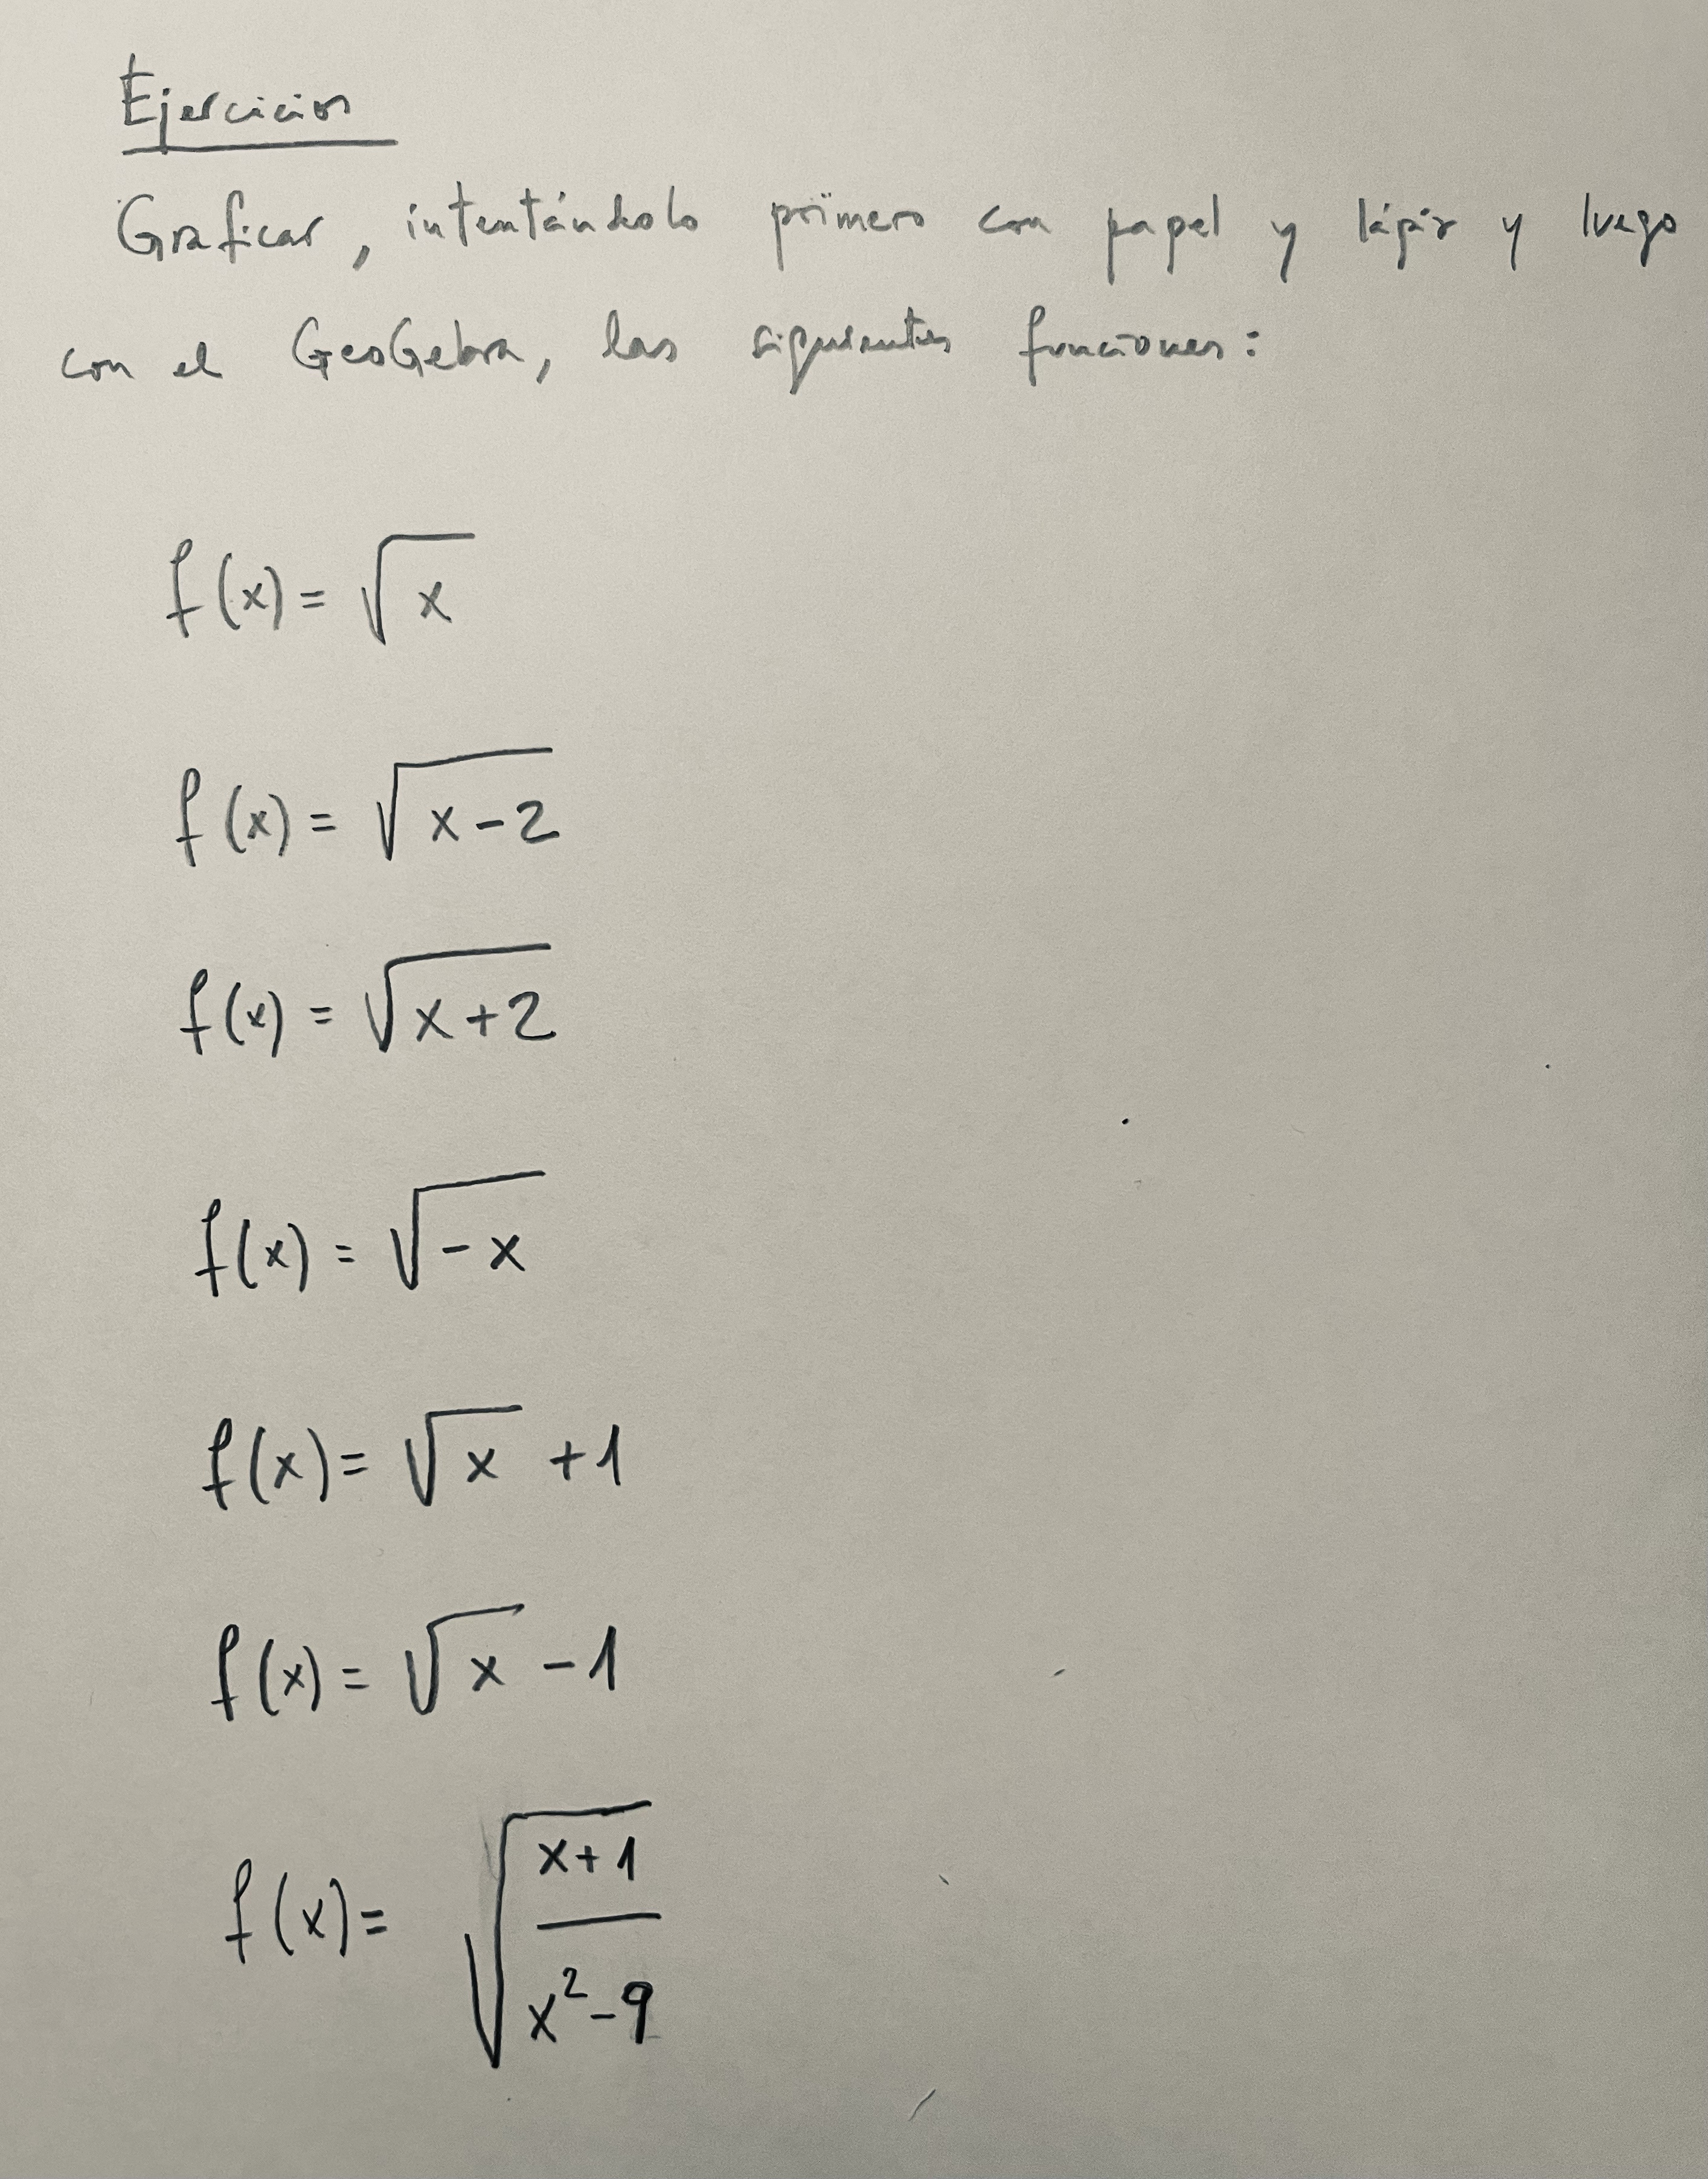 Ejercicios
Graficar, intentándolo primero con papel y lápiz y luego
con el GeoGebra, las siguientes funciones:
f(x) = √x
f(x) = √(x-2)
f(x) = √(x+2)
f(x) = √(-x)
f(x) = √x +1
f(x) = √x -1
f(x) = √((x+1)/(x²-9))